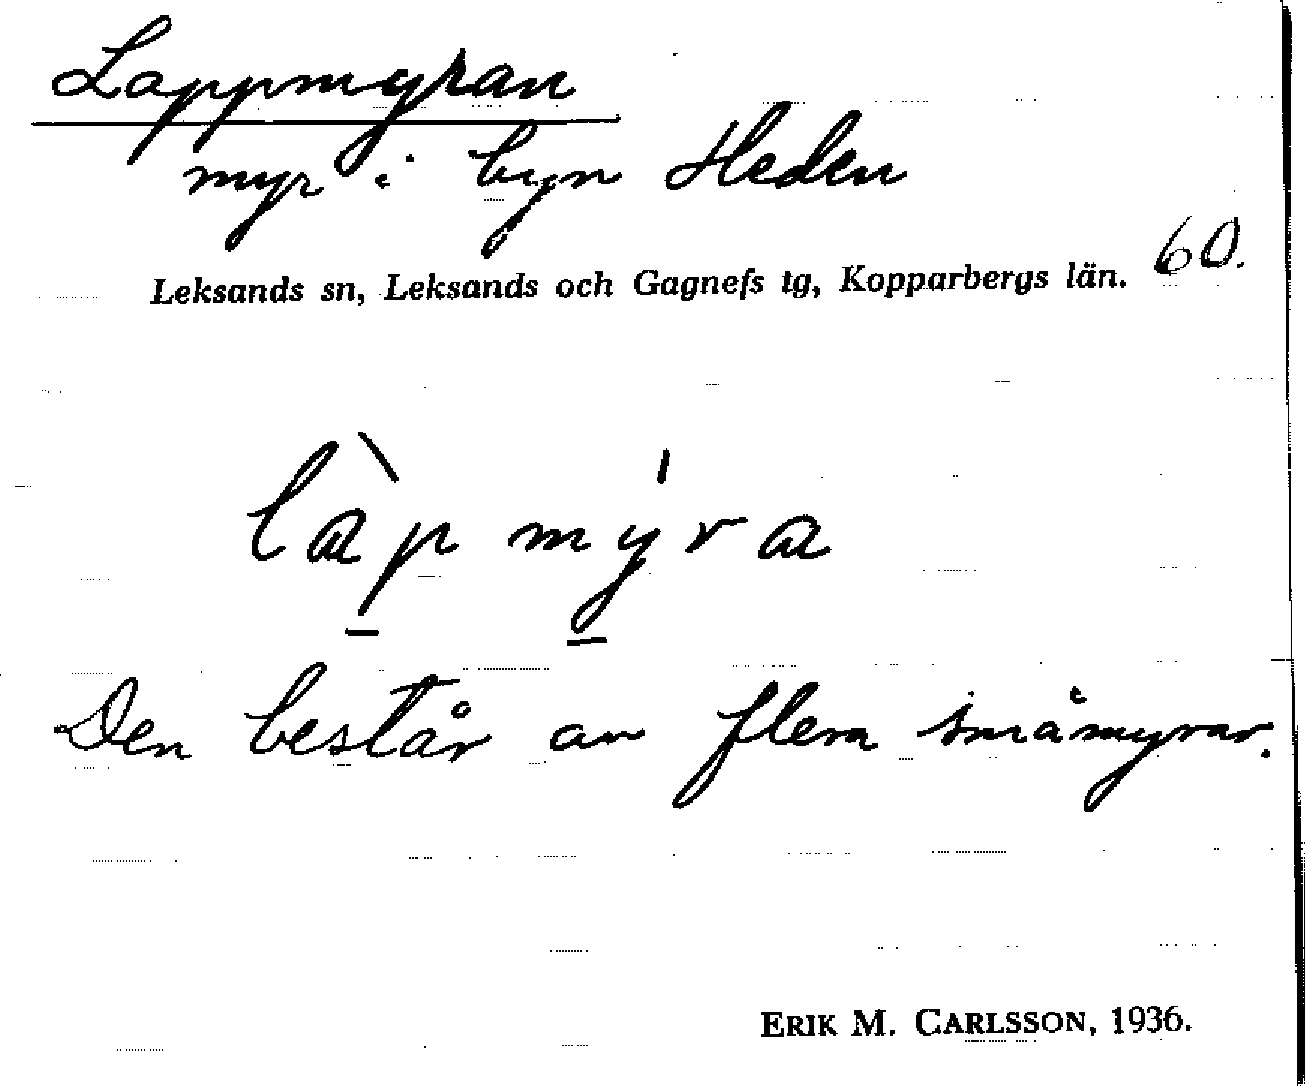 Lappmyran
myr i byn Heden
Leksands sn, Leksands och Gagnefs tg, Kopparbergs län. 60.
làp mý̱ra
Den består av flera småmyrar.
ERIK M. CARLSSON, 1936.